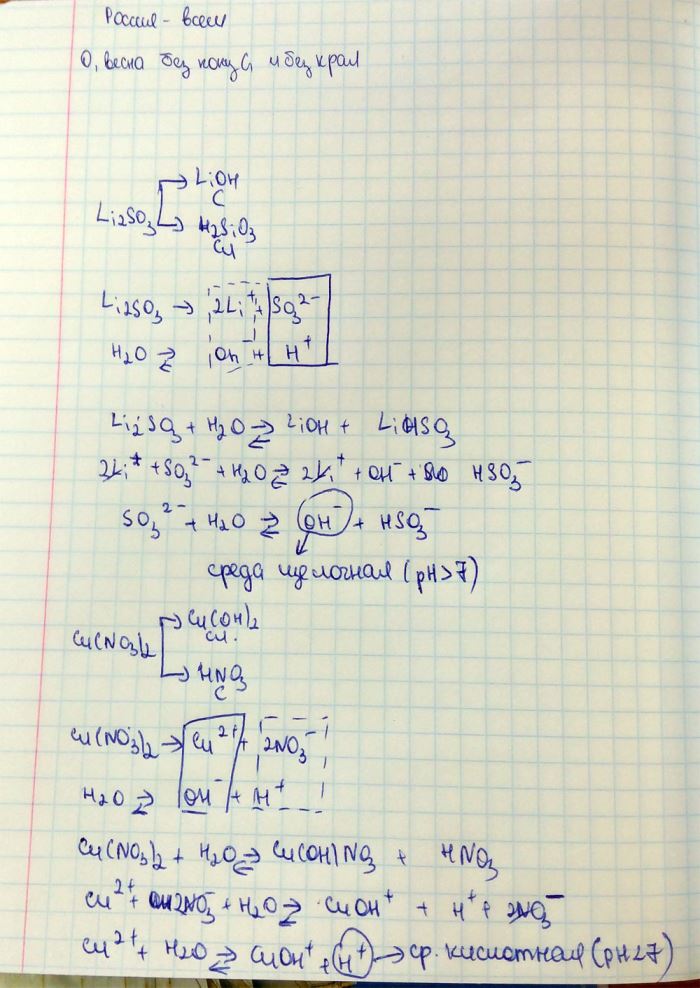 Россия - всем
О, весна без конца и без края
LiOH
С
Li₂SO₃
H₂SiO₃
Сл
Li₂SO₃ → 2Li⁺ + SO₃²⁻
H₂O ⇄ Oh⁻ + H⁺
Li₂SO₃ + H₂O ⇄ LiOH + LiHSO₃
2Li⁺ + SO₃²⁻ + H₂O ⇄ 2Li⁺ + OH⁻ + HSO₃⁻
SO₃²⁻ + H₂O ⇄ OH⁻ + HSO₃⁻
среда щелочная (pH>7)
Cu(OH)₂
Сл.
Cu(NO₃)₂
HNO₃
С
Cu(NO₃)₂ → Cu²⁺ + 2NO₃⁻
H₂O ⇄ OH⁻ + H⁺
Cu(NO₃)₂ + H₂O ⇄ Cu(OH)NO₃ + HNO₃
Cu²⁺ + 2NO₃⁻ + H₂O ⇄ CuOH⁺ + H⁺ + 2NO₃⁻
Cu²⁺ + H₂O ⇄ CuOH⁺ + H⁺ → ср. кислотная (pH<7)